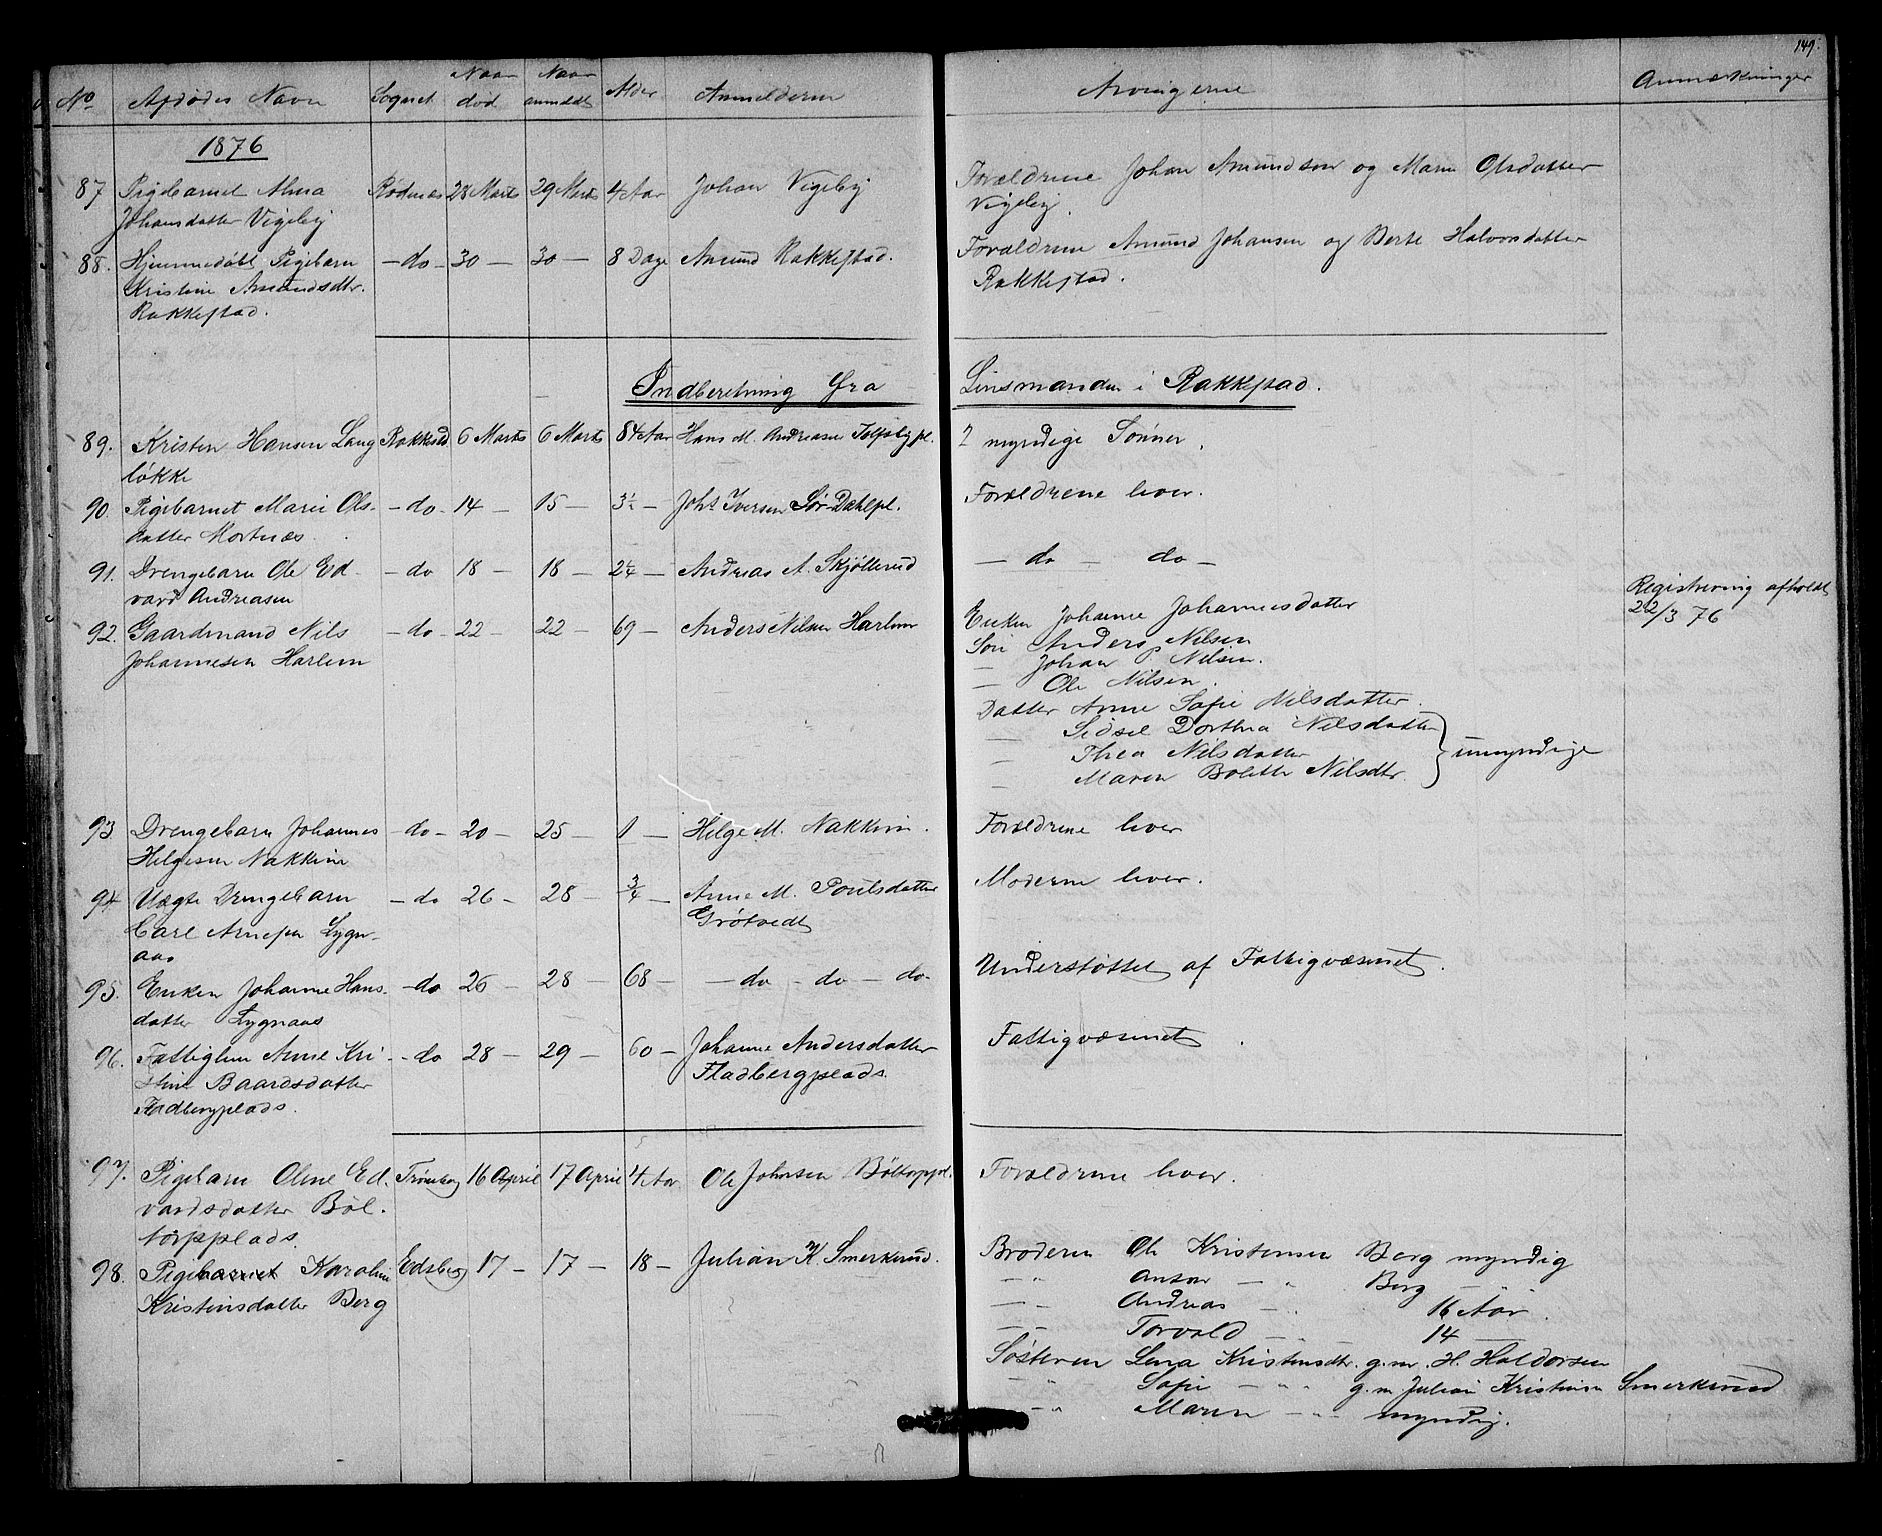 149.
No. Afdødes Navn Sognet Naar død Naar anmeldt Alder Anmelderen Arvingerne Anmærkninger
1876
87 Pigebarnet Alma Rødnæs 28 Marts 29 Marts 4 Aar Johan Vigeby Forældrene Johan Amundsen og Maren Olsdatter
Johansdatter Vigeby Vigeby.
88. Hjemmedøbt Pigebarn - do - 30 - 30 - 8 Dage Amund Rakkestad. Forældrene Amund Johansen og Berte Halvorsdatter
Kristine Amundsdtr. Rakkestad.
Rakkestad.
Indberetning fra Lensmanden i Rakkestad.
89. Kristen Hansen Lang Rakkestd 6 Marts 6 Marts 84 Aar Hans M. Andreasen Tolpsbypl. 2 myndige Sønner.
løkke
90. Pigebarnet Marie Ols- - do - 14 - 15 - 3½ - Johs Iversen Sør-Dahlpl. Forældrene lever.
datter Mortnæs.
91. Drengebarn Ole Ed- - do 18 - 18 - 2¼ - Andreas A. Skjøllerud - do - do -
vard Andreasen
92. Gaardmand Nils - do - 22 - 22 - 69 - Anders Nilsen Harlem Enken Johanne Johannesdatter Registrering afholdt
Johannesen Harlem Søn Anders Nilsen 22/3 76
- Johan P Nilsen.
- Ole Nilsen.
Datter Anne Sofie Nilsdatter.
- Sidsel Dorthea Nilsdatter
- Thea Nilsdatter } umyndige
- Maren Bolette Nilsdtr.
93 Drengebarn Johannes - do - 20 - 25 - 1 - Helge M. Nakkim. Forældrene lever
Helgesen Nakkim
94 Uægte Drengebarn - do 26 - 28 - ¾ - Anne M. Poulsdatter Moderen lever.
Carl Arnesen Lygn- Grøtvedt
aas
95. Enken Johanne Hans- - do 26 - 28 - 68 - - do - do - do - Understøttet af Fattigvæsenet.
datter Lygnaas
96. Fattiglem Anne Kri- - do 28 - 29 - 60 - Johanne Andersdatter Fattigvæsenet.
stine Baardsdatter Fladbergplads.
Fladbergplads.
97. Pigebarn Oline Ed- Trømborg 16 April 17 April 4 Aar Ole Johnsen Böltorppl. Forældrene lever.
vardsdatter Böl-
torpplads.
98. Pigebarnet Karoline Edsberg 17 - 17 - 18 - Julian K. Smerkerud. Broderen Ole Kristensen Berg myndig
Kristensdatter Berg - " Anton - " Berg -
- - Andreas - " 16 Aar.
- - Torvald - " 14 -
Søsteren Lena Kristensdtr. g. m. H. Haldorsen
- " Sofie - " g. m Julian Kristensen Smerkerud
- " Maren - " myndig.